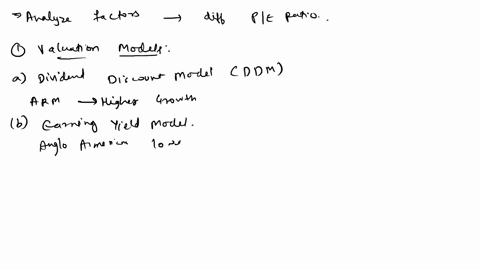 → Analyze factors → diff P/E Ratio.
① Valuation Models:
a) Dividend Discount Model (DDM)
ARM → Higher Growth
(b) Earning Yield Model.
Anglo American lowe